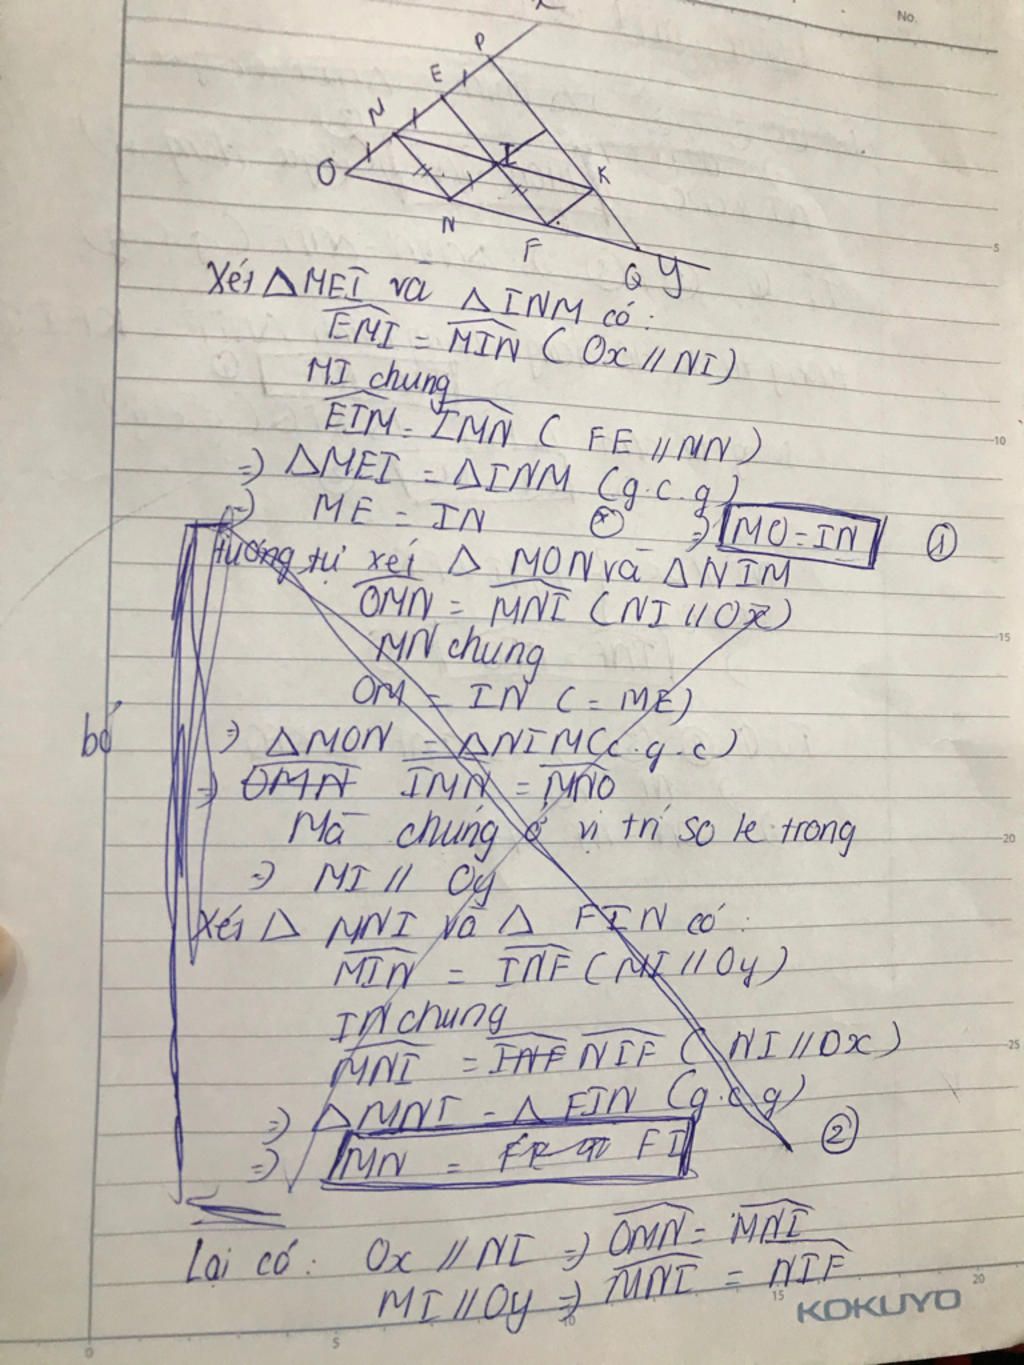 No.
x
P
E
N
O
I
K
N
F
Q
y
Xét △MEI và △INM có:
EMI = MIN ( Ox // NI)
MI chung
EIM = IMN ( FE // MN)
=) △MEI = △INM (g.c.g)
=) ME = IN (*) =) MO = IN ①
tương tự xét △ MON và △NIM
OMN = MNI (NI // Ox)
MN chung
OM = IN (= ME)
bỏ
=) △MON = △NIM (c.g.c)
=) OMN IMN = MNO
Mà chúng ở vị trí so le trong
=) MI // Oy
Xét △ MNI và △ FIN có:
MIN = INF (MI // Oy)
IN chung
MNI = INF NIF ( NI // Ox)
=) △MNI = △ FIN (g.c.g)
=) MN = FI ②
Lại có: Ox // NI =) OMN = MNI
MI // Oy =) MNI = NIF
KOKUYO
5
10
15
20
25
0
5
10
15
20